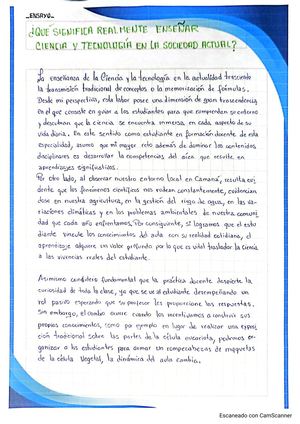 _ENSAYO_
¿QUÉ SIGNIFICA REALMENTE ENSEÑAR
CIENCIA Y TECNOLOGÍA EN LA SOCIEDAD ACTUAL?
La enseñanza de la Ciencia y la tecnología en la actualidad trasciende
la transmisión tradicional de conceptos o la memorización de fórmulas.
Desde mi perspectiva, esta labor posee una dimensión de gran trascendencia,
en el que consiste en guiar a los estudiantes para que comprendan su entorno
y descubran que la ciencia se encuentra inmersa, en cada aspecto de su
vida diaria. En este sentido como estudiante en formación docente de esta
especialidad, asumo que mi mayor reto además de dominar los contenidos
disciplinares es desarrollar las competencias del área que resulte, en
aprendizajes significativos.
Por otro lado, al observar nuestro entorno local en Camaná, resulta evi
dente que los fenómenos científicos nos rodean constantemente, evidencian
dose en nuestra agricultura, en la gestión del riego de agua, en las va-
riaciones climáticas y en los problemas ambientales de nuestra comuni
dad que cada año enfrentamos. Por consiguiente, si logramos que el estu
diante vincule los conocimientos del aula con su realidad cotidiana, el
aprendizaje adquiere un valor profundo por lo que es vital trasladar la ciencia
a las vivencias reales del estudiante.
Asimismo considero fundamental que la práctica docente despierte la
curiosidad de toda la clase, ya que se ve al estudiante desempeñando un
rol pasivo esperando que su profesor les proporcione las respuestas.
Sin embargo, el cambio ocurre cuando los incentivamos a construir sus
propios conocimientos, como por ejemplo en lugar de realizar una exposi
ción tradicional sobre las partes de la célula eucariota, podremos or-
ganizar a los estudiantes para armar un rompecabezas de maquetas
de la célula vegetal, la dinámica del aula cambia.
Escaneado con CamScanner